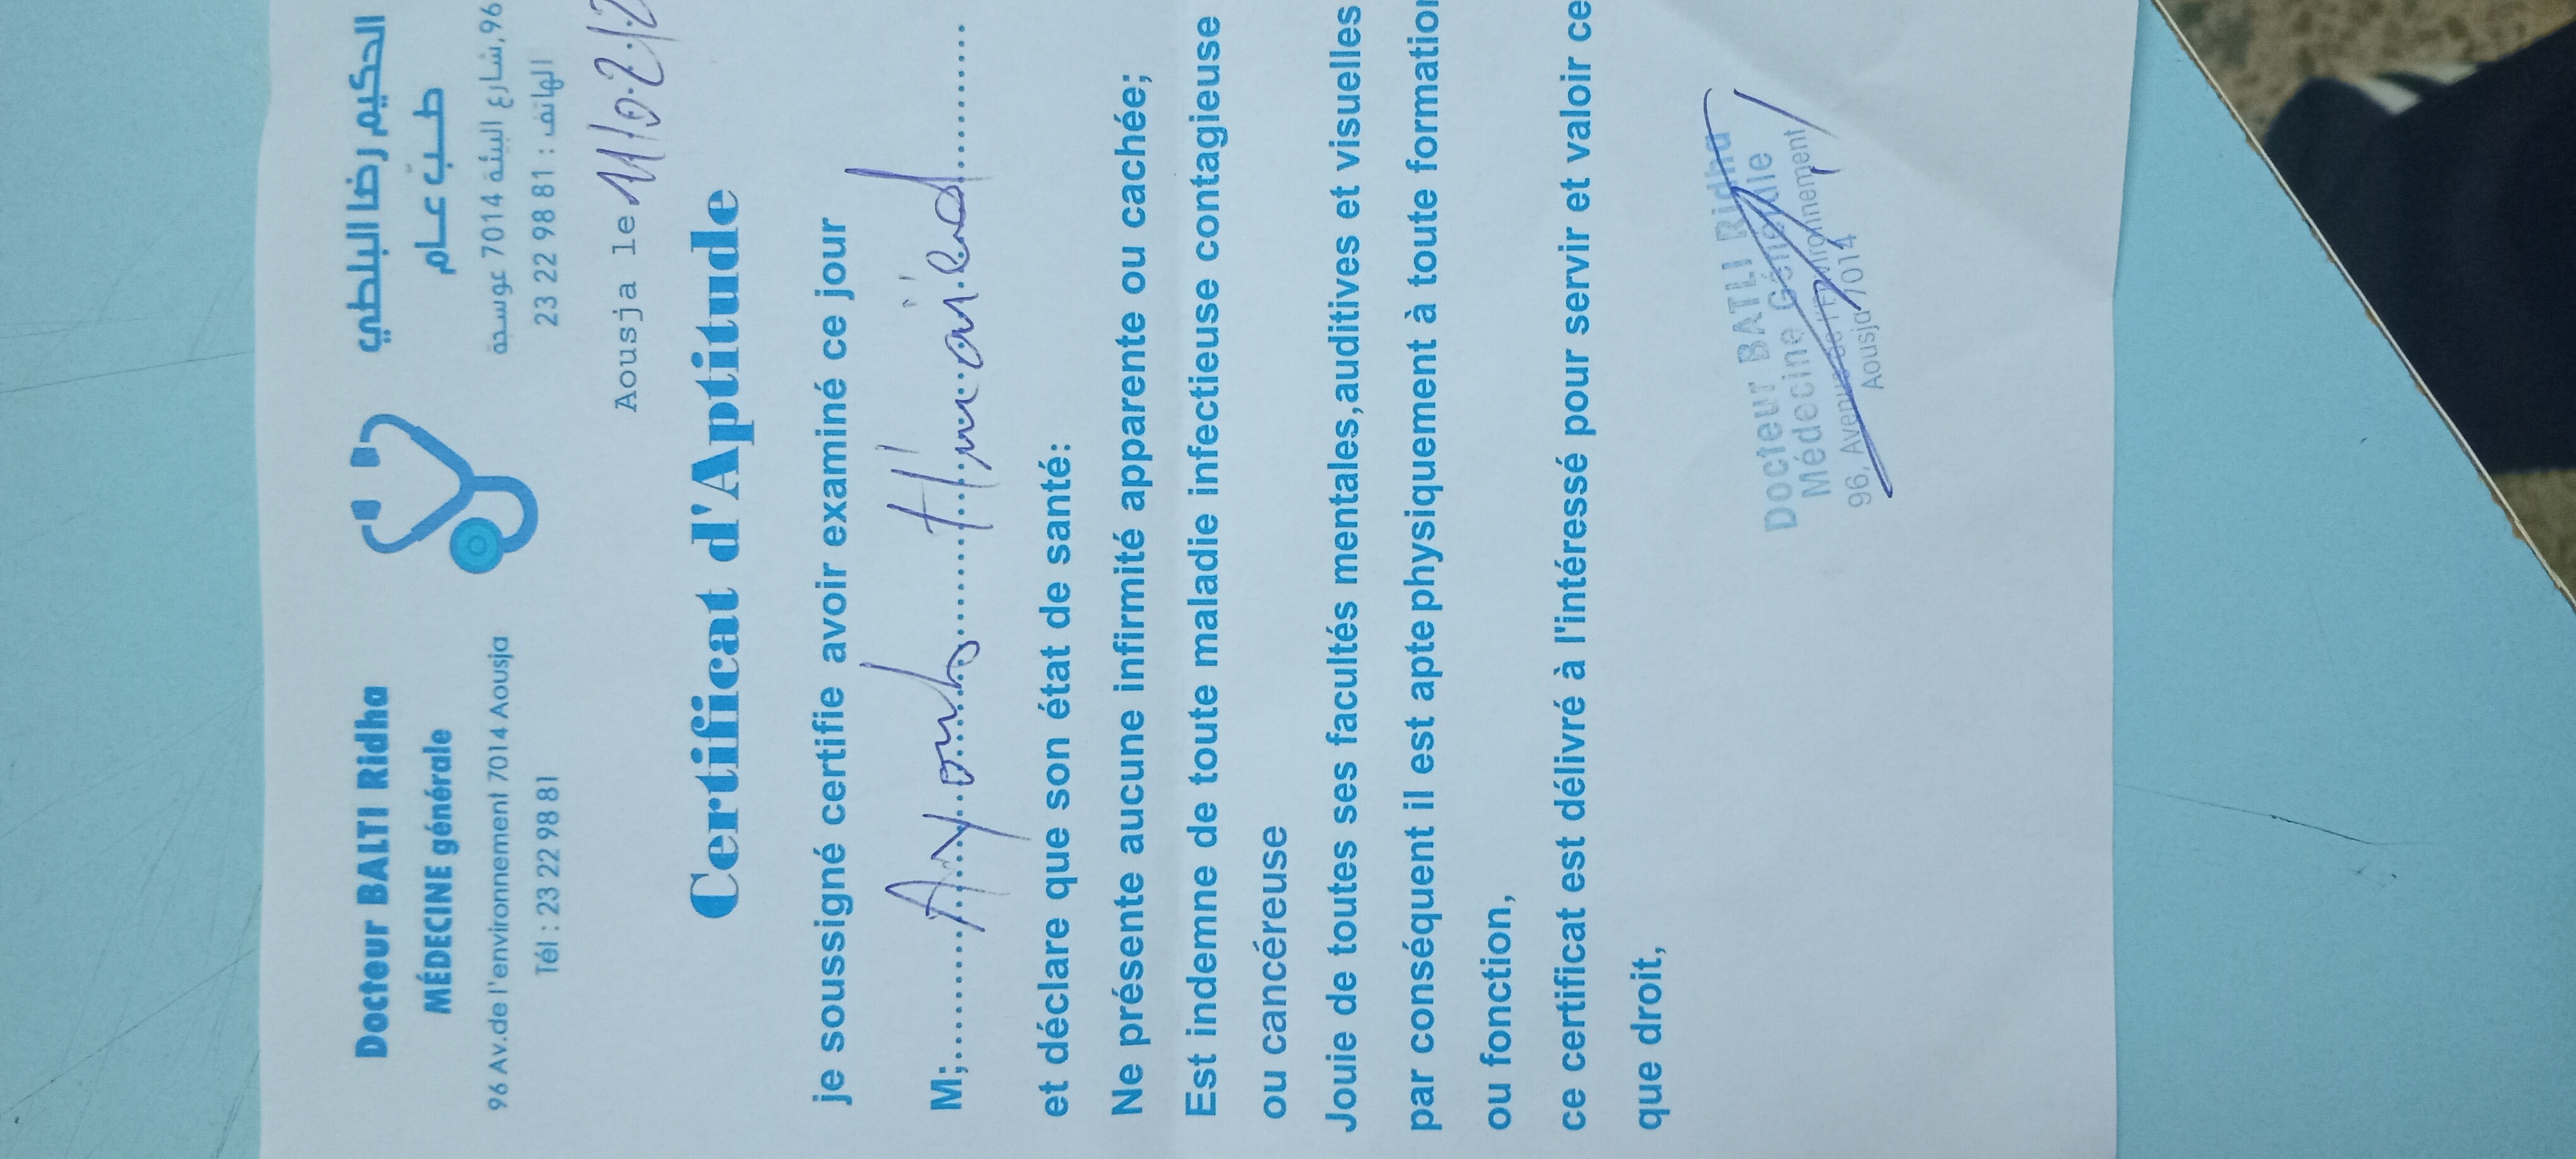 Docteur BALTI Ridha
MÉDECINE générale
96 Av.de l'environnement 7014 Aousja
Tél : 23 22 98 81
الحكيم رضا البلطي
طـبّ عـام
96,شارع البيئة 7014 عوسجة
الهاتف : 81 98 22 23
Aousja le 11/02/2
Certificat d'Aptitude
je soussigné certifie avoir examiné ce jour
M;......Ayoub......Hmaied......
et déclare que son état de santé:
Ne présente aucune infirmité apparente ou cachée;
Est indemne de toute maladie infectieuse contagieuse
ou cancéreuse
Jouie de toutes ses facultés mentales,auditives et visuelles
par conséquent il est apte physiquement à toute formation
ou fonction,
ce certificat est délivré à l'intéressé pour servir et valoir ce
que droit,
Docteur BATLI Ridha
Médecine Générale
96, Avenue de l'Environnement
Aousja 7014